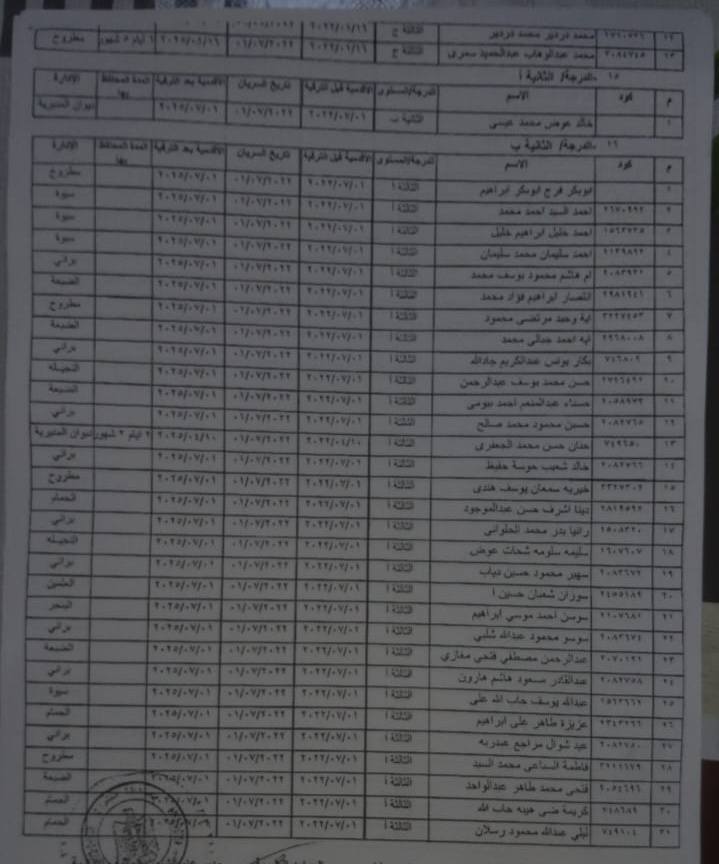 ١٢ ١٧٦٠٥٢٦ محمد دردير محمد دردير الثالثة ج ٢٠٢٢/٠١/١٦
١٣ ٢٠٩٤٧٤٥ محمد عبدالوهاب عبدالحميد سمرى الثالثة ج ٢٠٢٢/٠١/١٦ ٠١/٠٧/٢٠٢٢ ٢٠٢٥/٠١/١٦ ٦ ايام ٥ شهور مطروح
١٥ -الدرجة/ الثانية أ
م كود الاسم الدرجة/المستوى الأقدمية قبل الترقية تاريخ السريان الأقدمية بعد الترقية المدة المحتفظ بها الإدارة
١ خالد عوض محمد عيسى الثانية ب ٢٠٢٢/٠٧/٠١ ٠١/٠٧/٢٠٢٢ ٢٠٢٥/٠٧/٠١ ديوان المديرية
١٦ -الدرجة/ الثانية ب
م كود الاسم الدرجة/المستوى الأقدمية قبل الترقية تاريخ السريان الأقدمية بعد الترقية المدة المحتفظ بها الإدارة
١ ابوبكر فرج ابوبكر ابراهيم الثالثة أ ٢٠٢٢/٠٧/٠١ ٠١/٠٧/٢٠٢٢ ٢٠٢٥/٠٧/٠١ مطروح
٢ احمد السيد احمد محمد الثالثة أ ٢٠٢٢/٠٧/٠١ ٠١/٠٧/٢٠٢٢ ٢٠٢٥/٠٧/٠١ سيوة
٣ احمد خليل ابراهيم خليل الثالثة أ ٠١/٠٧/٢٠٢٢ ٢٠٢٥/٠٧/٠١ سيوة
٤ احمد سليمان محمد سليمان الثالثة أ ٢٠٢٢/٠٧/٠١ ٠١/٠٧/٢٠٢٢ ٢٠٢٥/٠٧/٠١ سيوة
٥ ام هاشم محمود يوسف محمد الثالثة أ ٢٠٢٢/٠٧/٠١ ٠١/٠٧/٢٠٢٢ ٢٠٢٥/٠٧/٠١ براني
٦ انتصار ابراهيم فؤاد محمد الثالثة أ ٢٠٢٢/٠٧/٠١ ٠١/٠٧/٢٠٢٢ ٢٠٢٥/٠٧/٠١ الضبعة
٧ اية وحيد مرتضى محمود الثالثة أ ٢٠٢٢/٠٧/٠١ ٠١/٠٧/٢٠٢٢ ٢٠٢٥/٠٧/٠١ مطروح
٨ ٢٢٦٨٠٠٨ ايه احمد جبالى محمد الثالثة أ ٢٠٢٢/٠٧/٠١ ٠١/٠٧/٢٠٢٢ ٢٠٢٥/٠٧/٠١ الضبعة
٩ ٧٤٦٨٠٩ بكار يونس عبدالكريم جادالله الثالثة أ ٢٠٢٢/٠٧/٠١ ٠١/٠٧/٢٠٢٢ ٢٠٢٥/٠٧/٠١ براني
١٠ حسن محمد يوسف عبدالرحمن الثالثة أ ٢٠٢٢/٠٧/٠١ ٠١/٠٧/٢٠٢٢ ٢٠٢٥/٠٧/٠١ النجيله
١١ ٢٠٥٨٩٧٣ حسناء عبدالمنعم احمد بيومى الثالثة أ ٢٠٢٢/٠٧/٠١ ٠١/٠٧/٢٠٢٢ ٢٠٢٥/٠٧/٠١ الضبعة
١٢ ٢٠٨٢٧٦٥ حسين محمود محمد صالح الثالثة أ ٢٠٢٢/٠٧/٠١ ٠١/٠٧/٢٠٢٢ ٢٠٢٥/٠٧/٠١ براني
١٣ ٧٤٩٦٥٠ حنان حسن محمد الجعفرى الثالثة أ ٢٠٢٢/٠٤/١٠ ٠١/٠٧/٢٠٢٢ ٢٠٢٥/٠٤/١٠ ٢ ايام ٣ شهور ديوان المديرية
١٤ ٢٠٨٢٧٦٦ خالد شعيب حوسة حفيظ الثالثة أ ٢٠٢٢/٠٧/٠١ ٠١/٠٧/٢٠٢٢ ٢٠٢٥/٠٧/٠١ براني
١٥ ٣٣٢٧٣٠٢ خيريه سمعان يوسف هندى الثالثة أ ٢٠٢٢/٠٧/٠١ ٠١/٠٧/٢٠٢٢ ٢٠٢٥/٠٧/٠١ مطروح
١٦ ٢٨١٢٥٩٢ دينا اشرف حسن عبدالموجود الثالثة أ ٢٠٢٢/٠٧/٠١ ٠١/٠٧/٢٠٢٢ ٢٠٢٥/٠٧/٠١ الحمام
١٧ ١٥٠٨٣٢٠ رانيا بدر محمد الحلوانى الثالثة أ ٢٠٢٢/٠٧/٠١ ٠١/٠٧/٢٠٢٢ ٢٠٢٥/٠٧/٠١ براني
١٨ ١٦٠٧٦٠٧ سليمه سلومه شحات عوض الثالثة أ ٢٠٢٢/٠٧/٠١ ٠١/٠٧/٢٠٢٢ ٢٠٢٥/٠٧/٠١ النجيله
١٩ ٢٠٨٣٦٧٢ سهير محمود حسين دياب الثالثة أ ٢٠٢٢/٠٧/٠١ ٠١/٠٧/٢٠٢٢ ٢٠٢٥/٠٧/٠١ براني
٢٠ ٢٤٥٥١٨٩ سوزان شعبان حسين ا الثالثة أ ٢٠٢٢/٠٧/٠١ ٠١/٠٧/٢٠٢٢ ٢٠٢٥/٠٧/٠١ العلمين
٢١ ٢١٠٧٦٨١ سوسن احمد موسي ابراهيم الثالثة أ ٢٠٢٢/٠٧/٠١ ٠١/٠٧/٢٠٢٢ ٢٠٢٥/٠٧/٠١
٢٢ ٢٠٨٣٦٧٤ سوسو محمود عبدالله شلبي الثالثة أ ٢٠٢٢/٠٧/٠١ ٠١/٠٧/٢٠٢٢ ٢٠٢٥/٠٧/٠١ براني
٢٣ ٢٠٧٠١٢٦ عبدالرحمن مصطفي فتحي مغازي الثالثة أ ٢٠٢٢/٠٧/٠١ ٠١/٠٧/٢٠٢٢ ٢٠٢٥/٠٧/٠١ الضبعة
٢٤ ٢٠٨٢٧٥٨ عبدالقادر مسعود هاشم هارون الثالثة أ ٢٠٢٢/٠٧/٠١ ٠١/٠٧/٢٠٢٢ ٢٠٢٥/٠٧/٠١ براني
٢٥ ١٥٦٣٦٦٢ عبدالله يوسف جاب الله على الثالثة أ ٢٠٢٢/٠٧/٠١ ٠١/٠٧/٢٠٢٢ ٢٠٢٥/٠٧/٠١ سيوة
٢٦ ٢٣٤٣٢٦٦ عزيزة طاهر على ابراهيم الثالثة أ ٢٠٢٢/٠٧/٠١ ٠١/٠٧/٢٠٢٢ ٢٠٢٥/٠٧/٠١ الحمام
٢٧ ٢٠٨٢٧٥٠ عيد شوال مراجع عبدربه الثالثة أ ٢٠٢٢/٠٧/٠١ ٠١/٠٧/٢٠٢٢ ٢٠٢٥/٠٧/٠١ براني
٢٨ فاطمة الساعى محمد السيد الثالثة أ ٢٠٢٢/٠٧/٠١ ٠١/٠٧/٢٠٢٢ ٢٠٢٥/٠٧/٠١ مطروح
٢٩ ٢٠٥٤٦٩٦ فتحى محمد طاهر عبدالواحد الثالثة أ ٢٠٢٢/٠٧/٠١ ٠١/٠٧/٢٠٢٢ ٢٠٢٥/٠٧/٠١ الضبعة
٣٠ ٧٤٨٦٨٩ كريمة ضى هيبه جاب الله الثالثة أ ٢٠٢٢/٠٧/٠١ ٠١/٠٧/٢٠٢٢ الحمام
٣١ ٧٤٩١٠٤ ليلى عبدالله محمود رسلان الثالثة أ ٢٠٢٢/٠٧/٠١ ٠١/٠٧/٢٠٢٢ الحمام